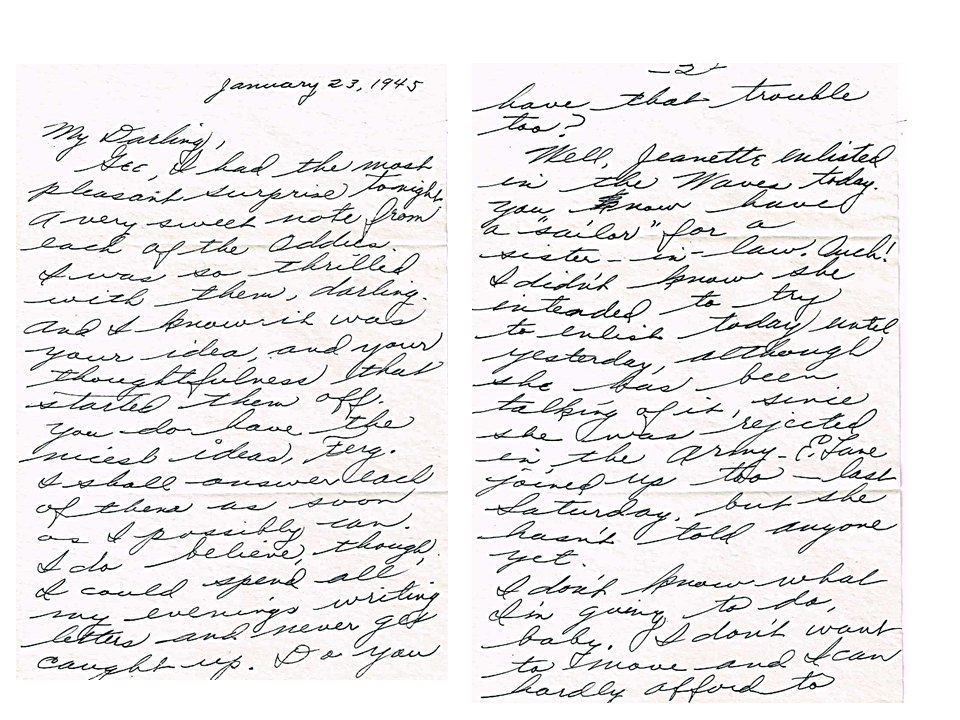 January 23, 1945
My Darling,
Gee, I had the most
pleasant surprise tonight.
A very sweet note from
each of the Oddies.
I was so thrilled
with them, darling.
And I know it was
your idea, and your
thoughtfulness that
started them off.
You do have the
nicest ideas, Ferg.
I shall answer each
of them as soon
as I possibly can.
I do believe, though,
I could spend all
my evenings writing
letters and never get
caught up. Do you
-2-
have that trouble
too?
Well, Jeanette enlisted
in the Waves today.
You know have
a "sailor" for a
sister-in-law. Ouch!
I didn't know she
intended to try
to enlist today until
yesterday, although
she has been
talking of it, since
she was rejected
in the Army - E. Jane
joined up too - last
Saturday, but she
hasn't told anyone
yet.
I don't know what
I'm going to do,
baby. I don't want
to move and I can
hardly afford to